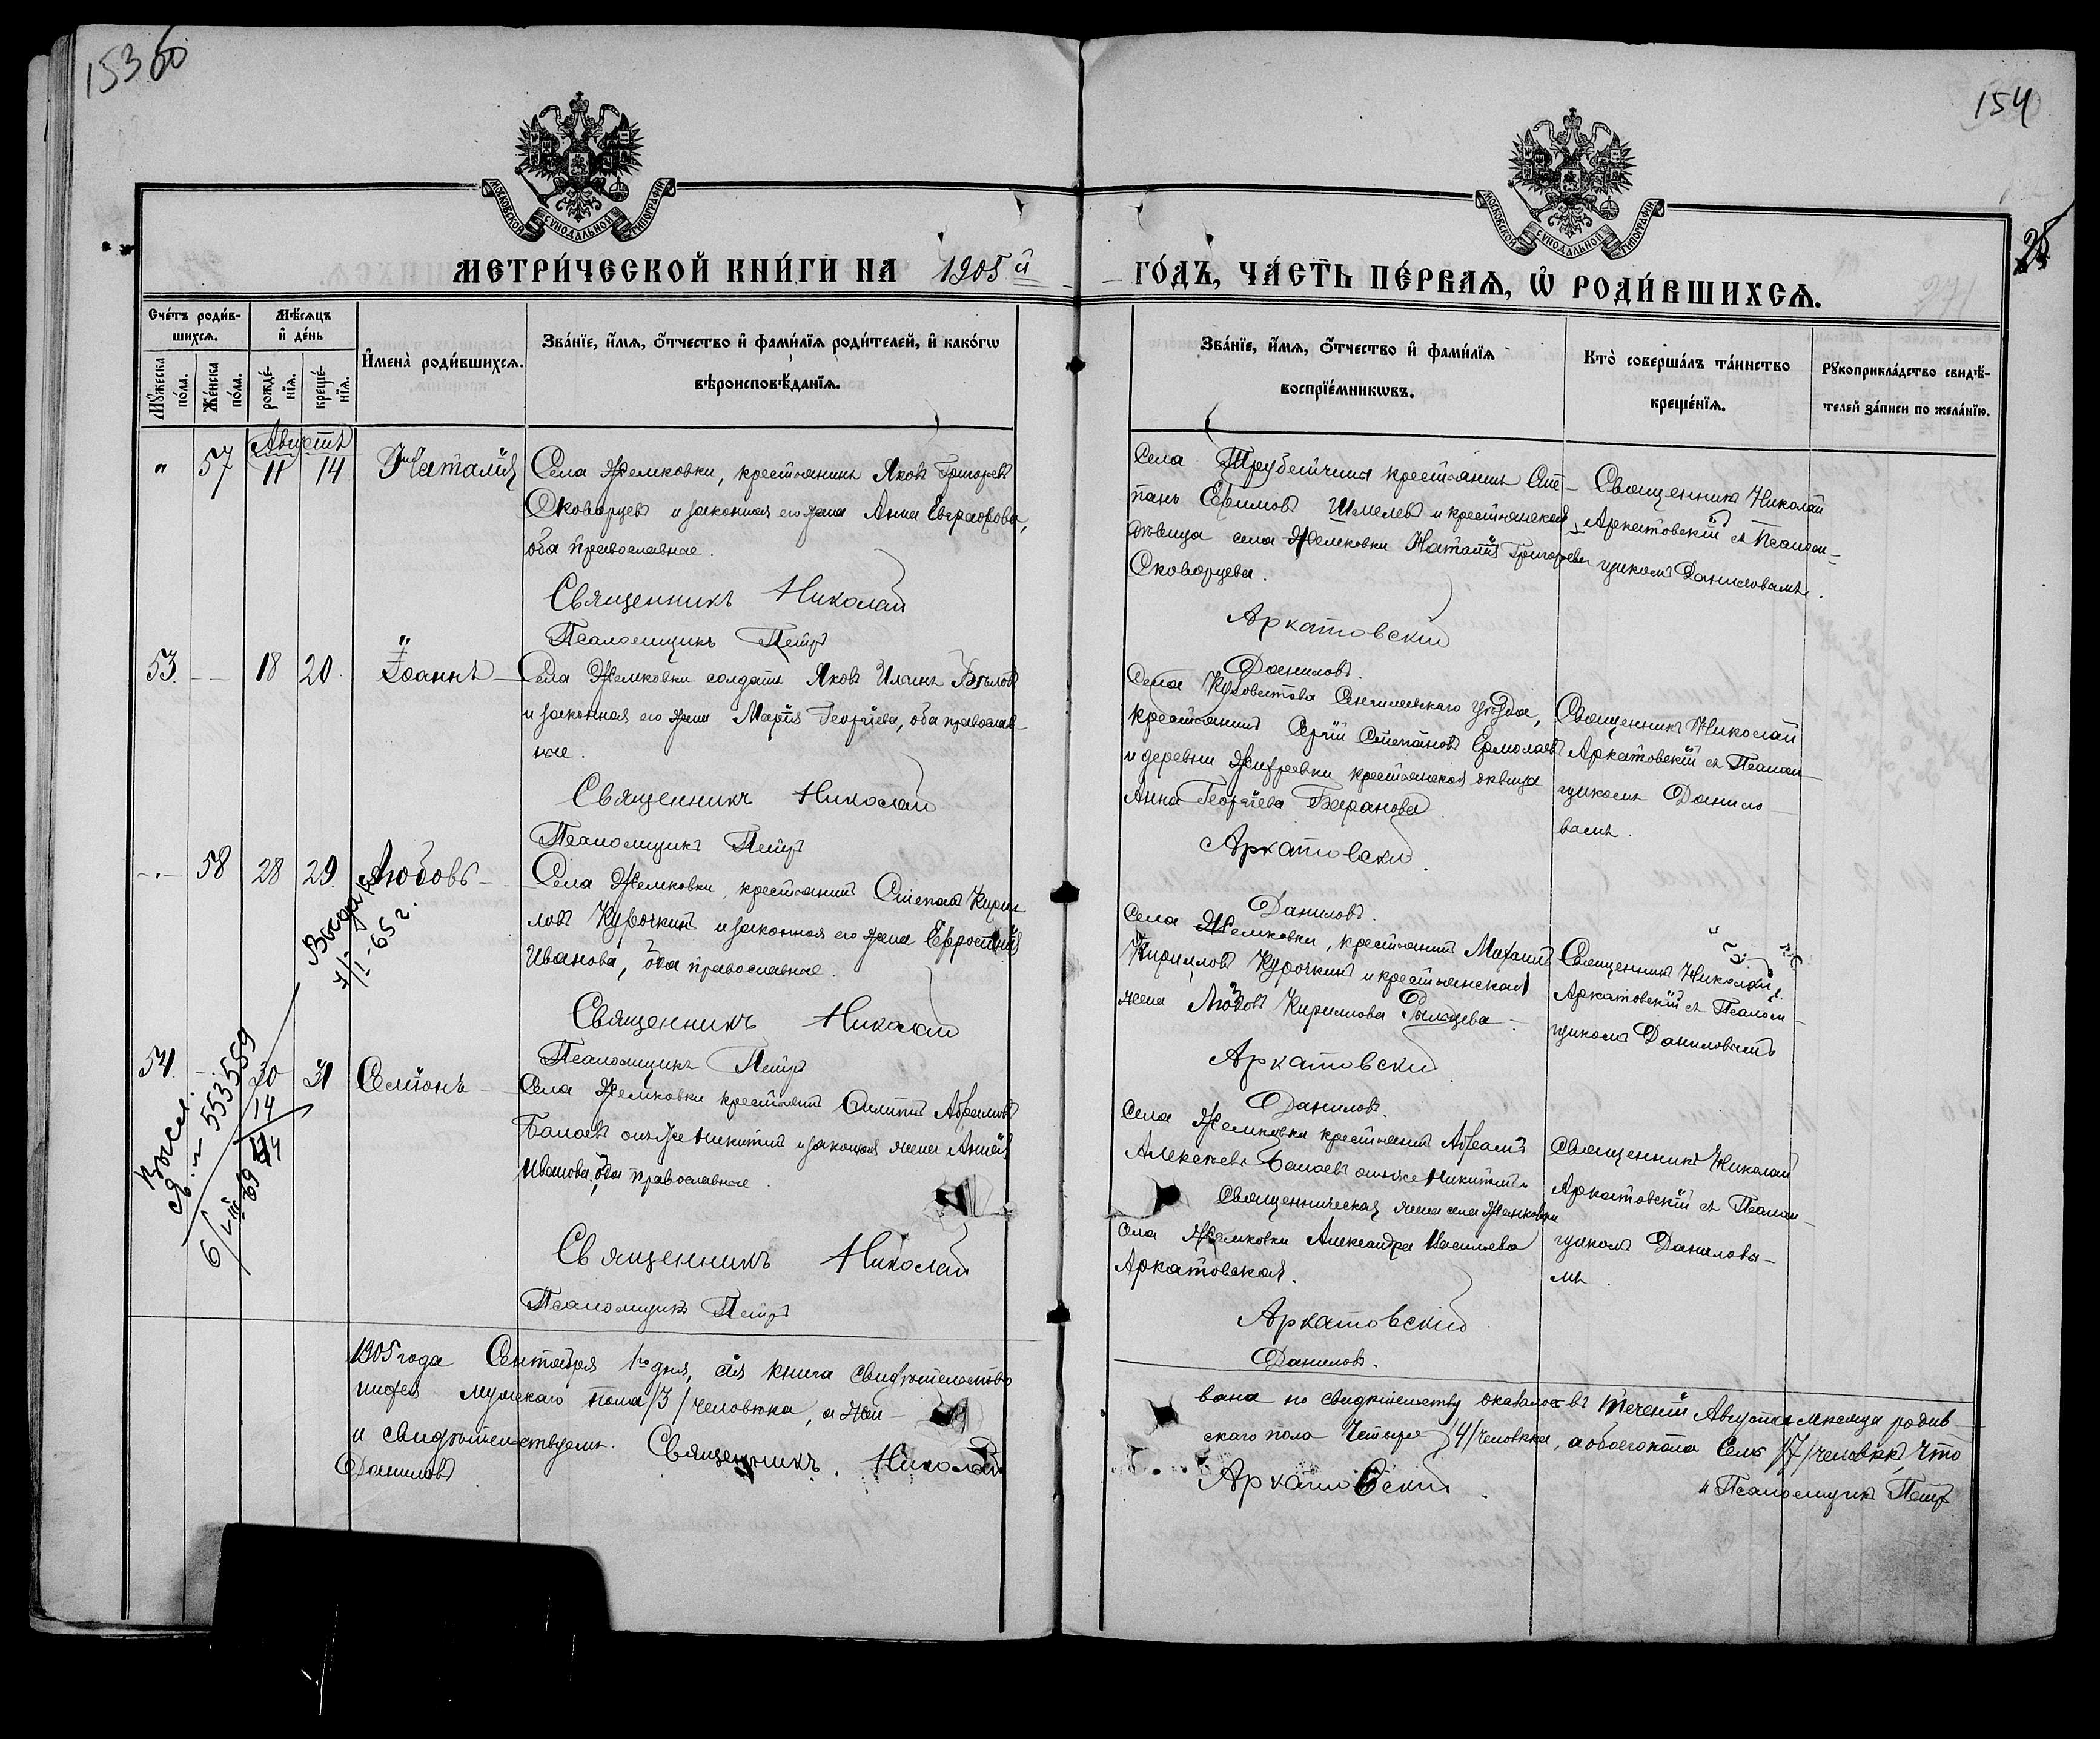 153 об
154
25
МОСКОВСКОЙ СѴНОДАЛЬНОЙ ТИПОГРАФІИ
МОСКОВСКОЙ СѴНОДАЛЬНОЙ ТИПОГРАФІИ
МЕТРИ́ЧЕСКОЙ КНИ́ГИ НА 1905й
ГО́ДЪ, ЧА́СТЬ ПЕ́РВАѦ, Ѡ҆ РОДИ́ВШИХСѦ.
Сче́тъ роди́в-
шихсѧ.
Мꙋ́жеска по́ла.
Же́нска по́ла.
Мѣ́сѧцъ
и҆ де́нь
рожде́-
нїѧ.
креще́-
нїѧ.
И҆мена̀ роди́вшихсѧ.
Зва́нїе, и҆́мѧ, ѻ҆́тчество и҆ фами́лїѧ роди́телей, и҆ како́гѡ
вѣроисповѣ́данїѧ.
Зва́нїе, и҆́мѧ, ѻ҆́тчество и҆ фами́лїѧ
воспрїе́мникѡвъ.
Кто̀ соверша́лъ та́инство
креще́нїѧ.
Рꙋкоприкла́дство свидѣ́-
телей за́писи по жела́нїю.
Августъ
" 57 11 14 Наталія
Села Жемковки, крестьянинъ Яковъ Григорьевъ
Скворцевъ и законная его жена Анна Евграфова,
оба православные.
Священникъ Николай
Псаломщикъ Петръ
Села Трубетчины крестьянинъ Сте-
панъ Ефимовъ Шмелевъ и крестьянская
дѣвица села Жемковки Наталія Григорьева
Скворцева.
Аркатовскій
Даниловъ.
Священникъ Николай
Аркатовскій съ Псалом-
щикомъ Даниловымъ.
53. 18 20. Іоаннъ
Села Жемковки солдатъ Яковъ Ильинъ Бѣловъ
и законная его жена Марія Георгіева, оба православ-
ные.
Священникъ Николай
Псаломщикъ Петръ
Села Сенгилеевскаго уѣзда,
крестьянинъ Сергій Степановъ Ермолаевъ
и деревни крестьянская дѣвица
Анна Георгіева Баранова.
Аркатовскій
Даниловъ.
Священникъ Николай
Аркатовскій съ Псалом-
щикомъ Данило-
вымъ.
58 28 29. Любовь
Села Жемковки, крестьянинъ Степанъ Кирил
ловъ Курочкинъ и законная его жена Ефросинія
Иванова, оба православные.
Священникъ Николай
Псаломщикъ Петръ
Села Жемковки, крестьянинъ Михаилъ
Кирилловъ Курочкинъ и крестьянская
жена Любовь Кириллова
Аркатовскій
Даниловъ.
Священникъ Николай
Аркатовскій съ Псалом-
щикомъ Даниловымъ
54. 30 31 Семіонъ
Села Жемковки крестьянинъ Филиппъ Абрамовъ
онъ же Никитинъ и законная жена
Иванова, оба православные.
Священникъ Николай
Псаломщикъ Петръ
Села Жемковки крестьянинъ Абрамъ
Алексѣевъ онъ же Никитинъ и
Священническая жена села Жемковки
Села Жемковки Александра Васильева
Аркатовская.
Аркатовскій
Даниловъ.
Священникъ Николай
Аркатовскій съ Псалом-
щикомъ Даниловы-
мъ.
1905 года Сентября 1го дня, сія книга свидѣтельство
вана по свидѣтельству оказалось въ теченіи Августа мѣсяца родив
шихся мужскаго пола /3/ человѣка, а жен-
скаго пола Четыре /4/ человѣка, а обоего пола Семь /7/ человѣкъ, что
и свидѣтельствуемъ. Священникъ Николай
Аркатовскій
и Псаломщикъ Петръ
Даниловъ